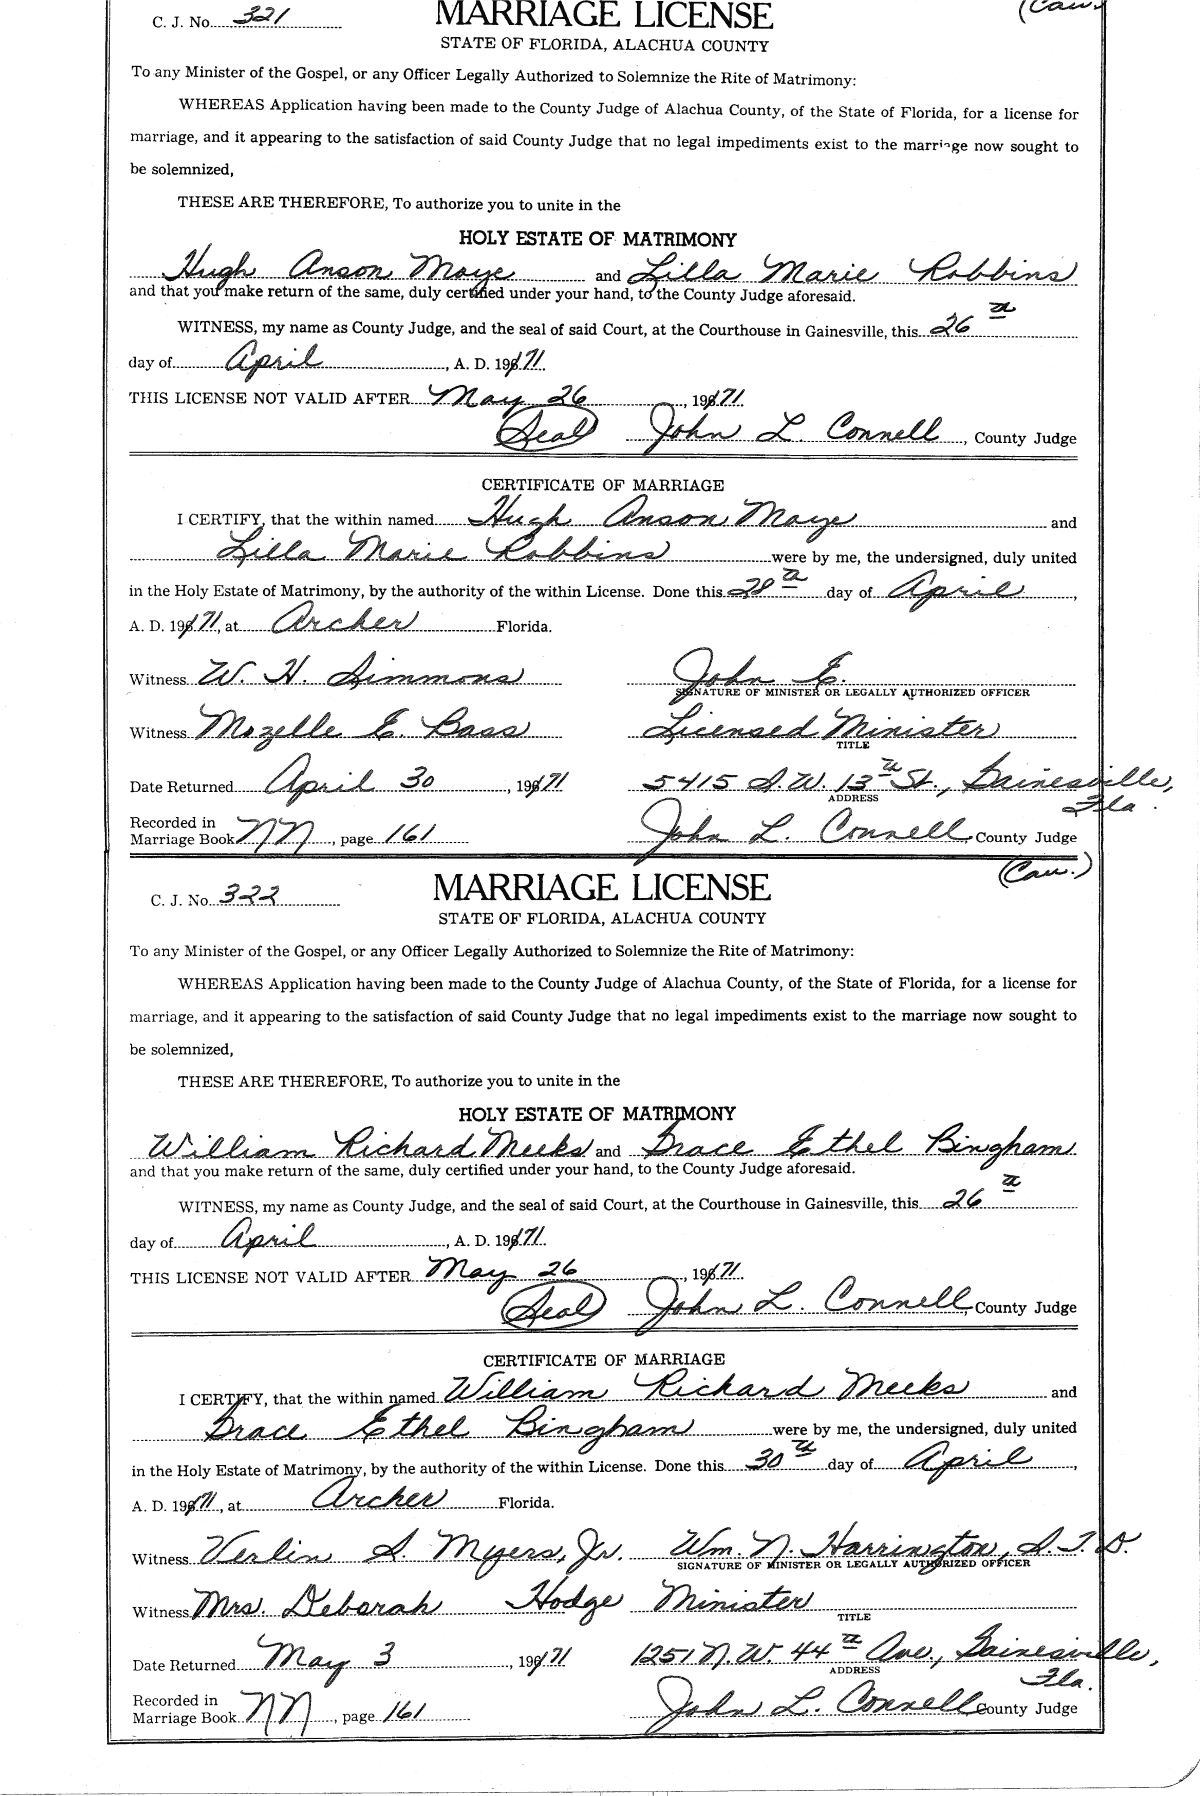 C. J. No. 321 MARRIAGE LICENSE (Cau.)
STATE OF FLORIDA, ALACHUA COUNTY
To any Minister of the Gospel, or any Officer Legally Authorized to Solemnize the Rite of Matrimony:
WHEREAS Application having been made to the County Judge of Alachua County, of the State of Florida, for a license for
marriage, and it appearing to the satisfaction of said County Judge that no legal impediments exist to the marriage now sought to
be solemnized,
THESE ARE THEREFORE, To authorize you to unite in the
HOLY ESTATE OF MATRIMONY
Hugh Anson Moye and Lilla Marie Robbins
and that you make return of the same, duly certified under your hand, to the County Judge aforesaid.
WITNESS, my name as County Judge, and the seal of said Court, at the Courthouse in Gainesville, this 26th
day of April, A. D. 1971.
THIS LICENSE NOT VALID AFTER May 26, 1971.
(Seal) John L. Connell, County Judge
CERTIFICATE OF MARRIAGE
I CERTIFY, that the within named Hugh Anson Moye and
Lilla Marie Robbins were by me, the undersigned, duly united
in the Holy Estate of Matrimony, by the authority of the within License. Done this 28th day of April,
A. D. 1971, at Archer Florida.
Witness W. H. Simmons John E.
SIGNATURE OF MINISTER OR LEGALLY AUTHORIZED OFFICER
Witness Mozelle E. Bass Licensed Minister
TITLE
Date Returned April 30, 1971 5415 S.W. 13th St., Gainesville,
ADDRESS Fla.
Recorded in
Marriage Book NN, page 161 John L. Connell County Judge
C. J. No. 322 MARRIAGE LICENSE (Cau.)
STATE OF FLORIDA, ALACHUA COUNTY
To any Minister of the Gospel, or any Officer Legally Authorized to Solemnize the Rite of Matrimony:
WHEREAS Application having been made to the County Judge of Alachua County, of the State of Florida, for a license for
marriage, and it appearing to the satisfaction of said County Judge that no legal impediments exist to the marriage now sought to
be solemnized,
THESE ARE THEREFORE, To authorize you to unite in the
HOLY ESTATE OF MATRIMONY
William Richard Meeks and Grace Ethel Bingham
and that you make return of the same, duly certified under your hand, to the County Judge aforesaid.
WITNESS, my name as County Judge, and the seal of said Court, at the Courthouse in Gainesville, this 26th
day of April, A. D. 1971.
THIS LICENSE NOT VALID AFTER May 26, 1971.
(Seal) John L. Connell, County Judge
CERTIFICATE OF MARRIAGE
I CERTIFY, that the within named William Richard Meeks and
Grace Ethel Bingham were by me, the undersigned, duly united
in the Holy Estate of Matrimony, by the authority of the within License. Done this 30th day of April,
A. D. 1971, at Archer Florida.
Witness Verlin S. Myers, Jr. Wm. N. Harrington, S.T.D.
SIGNATURE OF MINISTER OR LEGALLY AUTHORIZED OFFICER
Witness Mrs. Deborah Hodge Minister
TITLE
Date Returned May 3, 1971 1251 N.W. 44th Ave., Gainesville,
ADDRESS Fla.
Recorded in
Marriage Book NN, page 161 John L. Connell County Judge